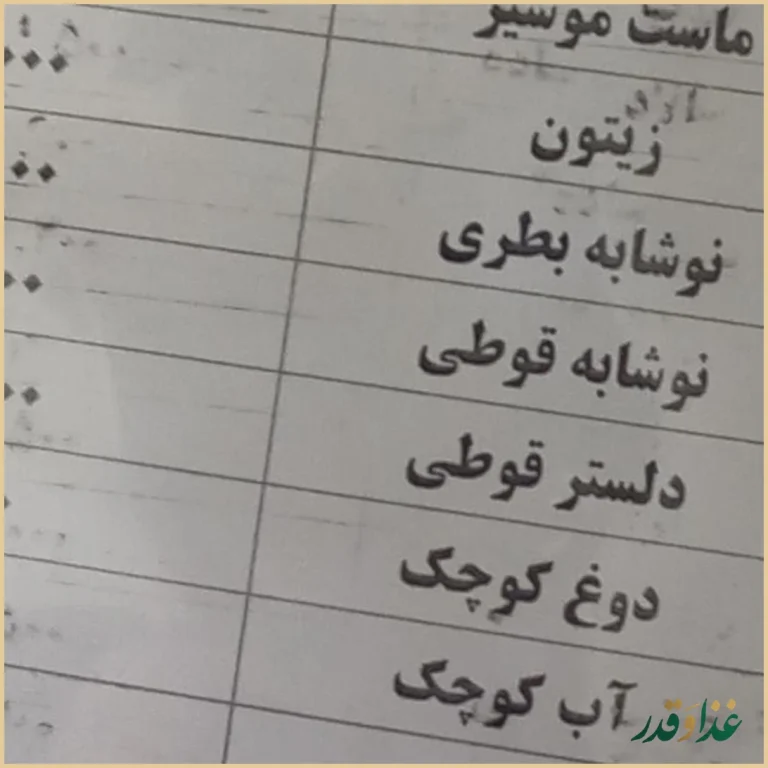 ماست موسیر
زیتون
نوشابه بطری
نوشابه قوطی
دلستر قوطی
دوغ کوچک
آب کوچک
غذا و قدر